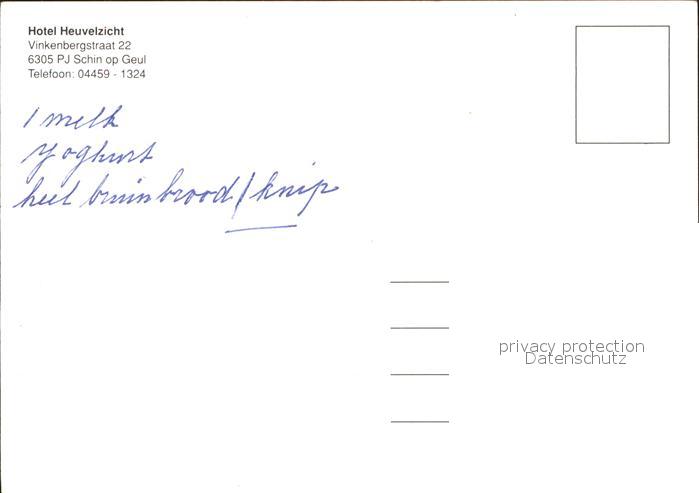 Hotel Heuvelzicht
Vinkenbergstraat 22
6305 PJ Schin op Geul
Telefoon: 04459 - 1324
1 melk
yoghurt
heel bruinbrood/knip
privacy protection
Datenschutz